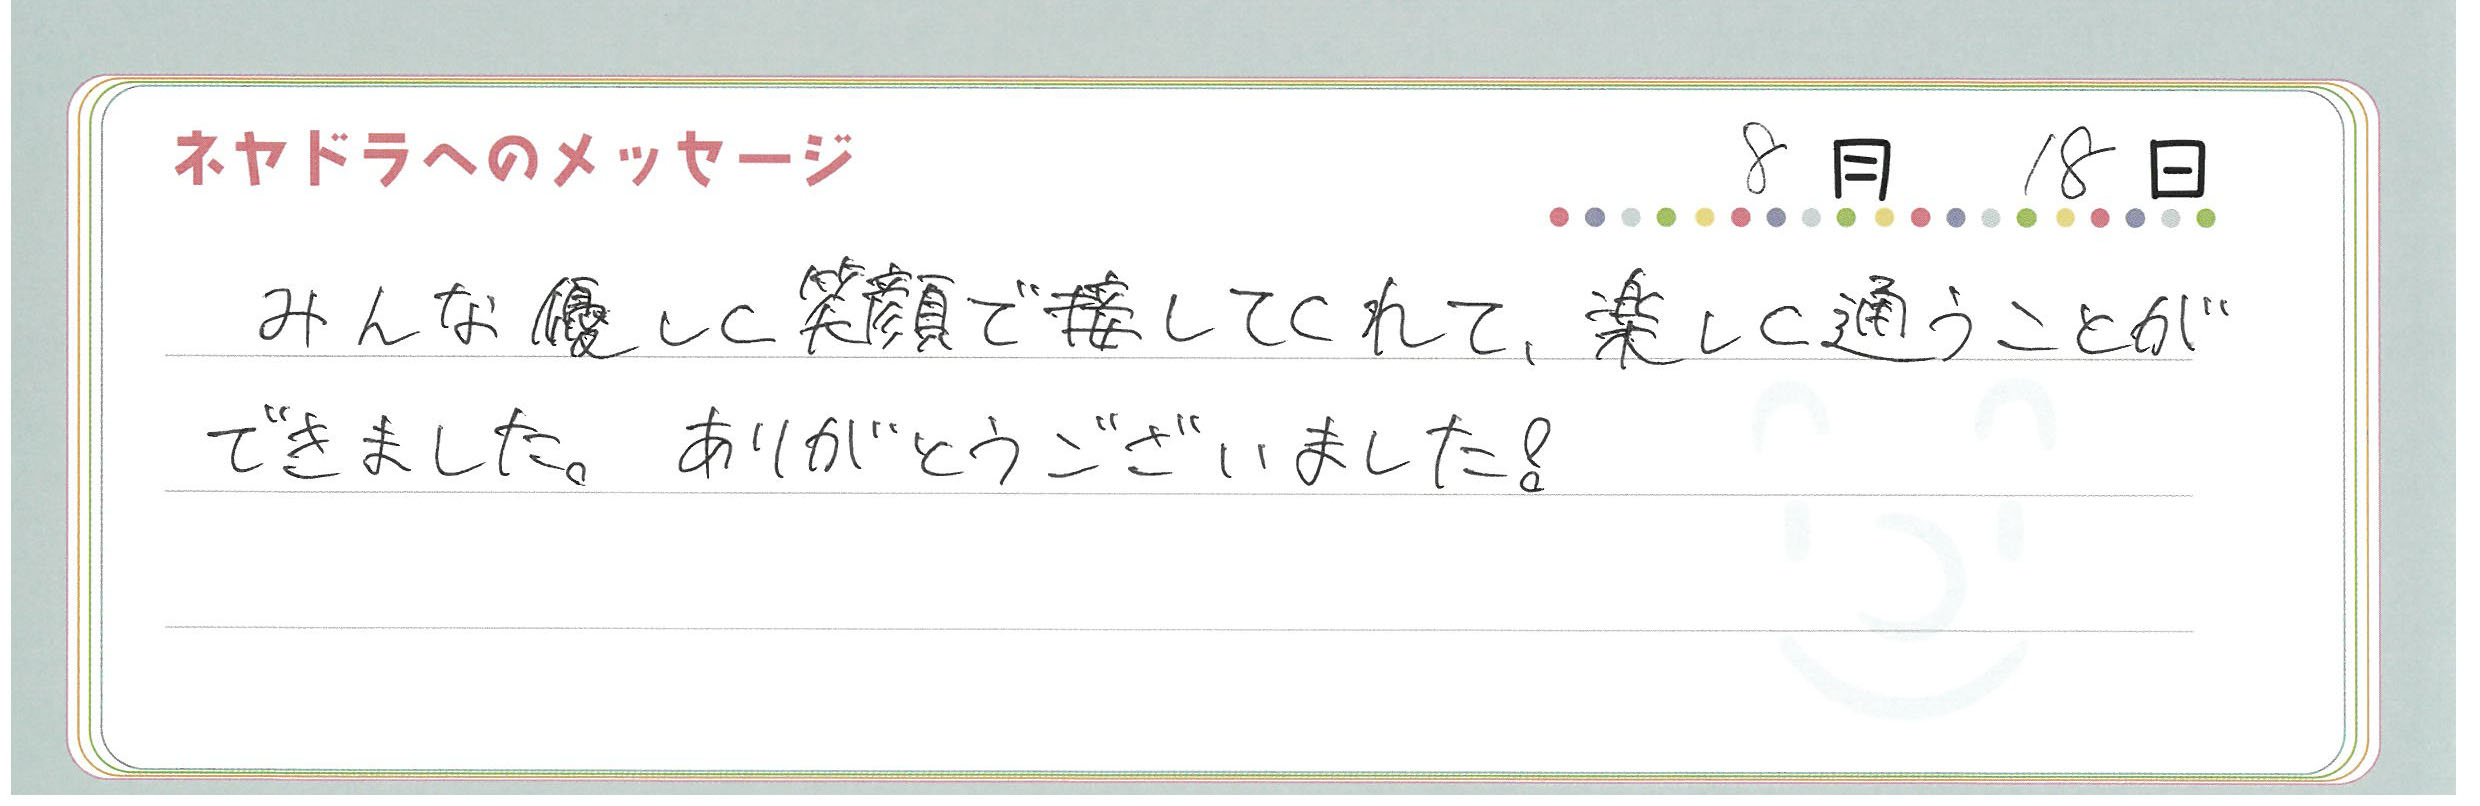 ネヤドラへのメッセージ 8月 18日
みんな優しく笑顔で接してくれて、楽しく通うことが
できました。ありがとうございました!